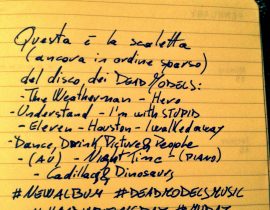 Questa è la scaletta
(ancora in ordine sparso)
del disco dei DEAD MODELS:
- The Weatherman - Hero
- Understand - I'm with STUPID
- Eleven - Houston - I walked away
- Dance, Drink, Picture & People
- (AU) - Night Time - (PIANO)
- Cadillac & Dinosaurs
#NEWALBUM #DEADMODELSMUSIC